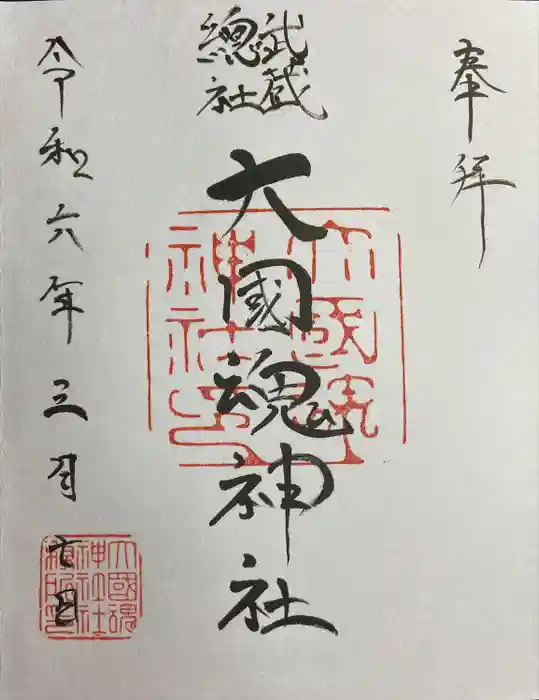 奉拝
武蔵
總社
大國魂神社
令和六年三月七日
大國魂
神社印
大國魂
神社社